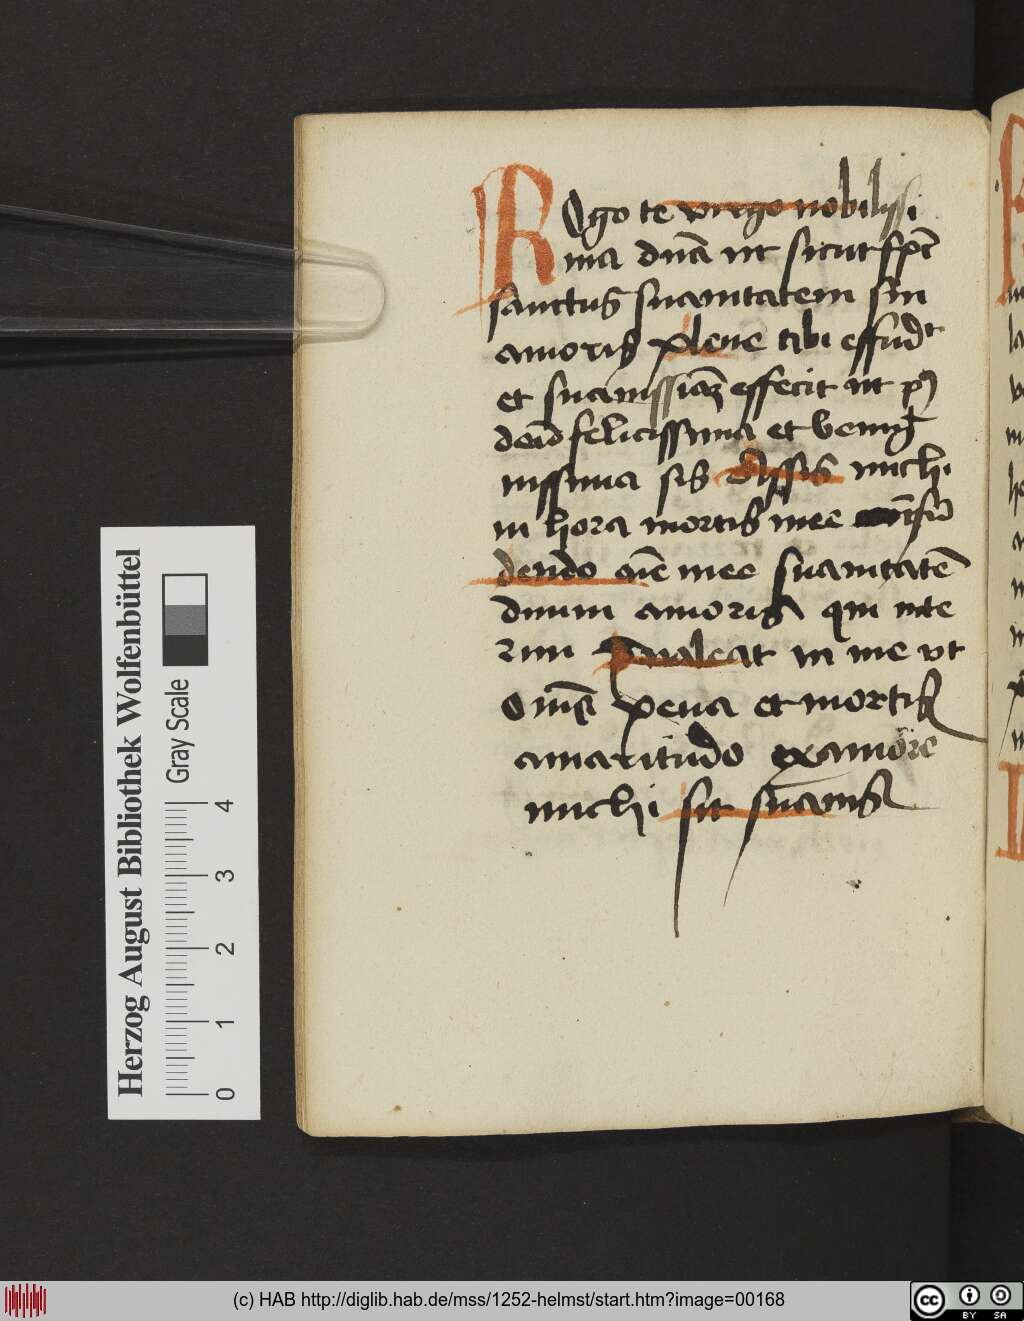 Rogo te virgo nobilissi
ma dn̄a ut sicut sp̄c
sanctus suauitatem sui
amoris plene tibi effudit
et suauissiāȝ effecit ut pꝰ
deū felicissima et benig
nissima sis Assis michi
in hora mortis mee infū
dendo aīe mee suauitatē
diuini amoris qui inte
rim valeat in me vt
oīnis pena et mortis
amaritudo ex amore
michi sit suauis
Herzog August Bibliothek Wolfenbüttel
Gray Scale
0 1 2 3 4
(c) HAB http://diglib.hab.de/mss/1252-helmst/start.htm?image=00168
cc BY SA